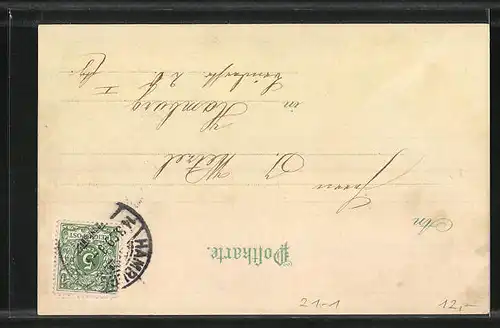 Postkarte.
An
Herrn D. Wetzel
in Hamburg
I
REICHSPOST
5
HAMBURG
21-1
12,-